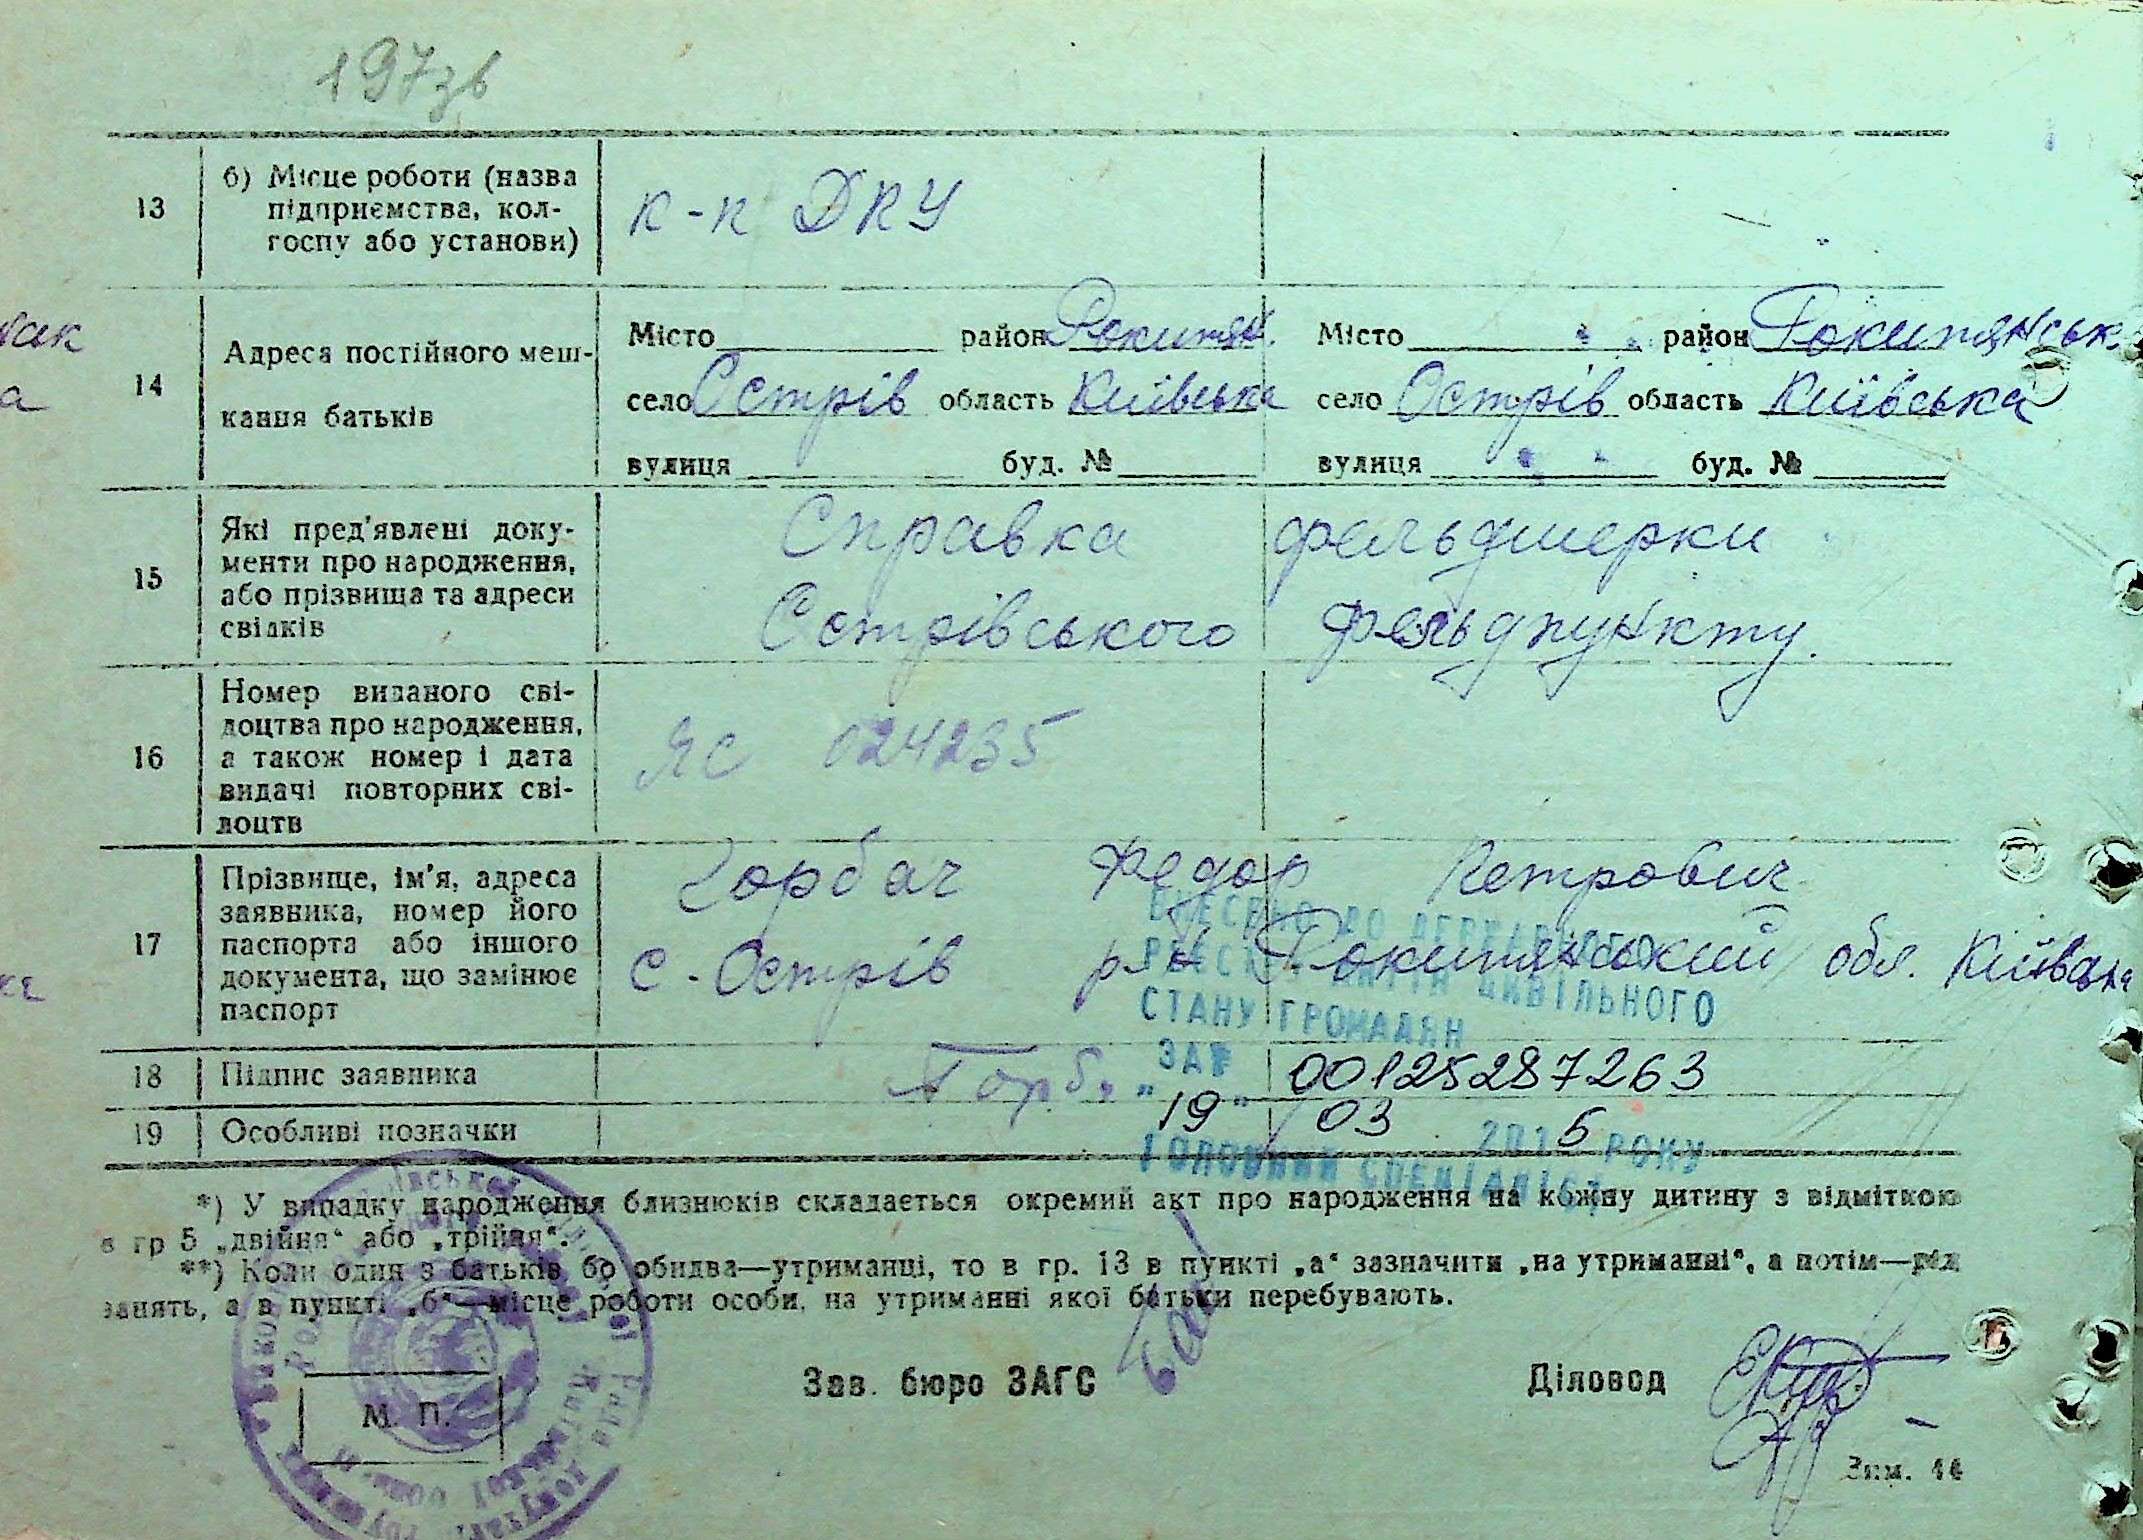 197зв
13
б) Місце роботи (назва
підприємства, кол-
госпу або установи)
к-п ДКУ
14
Адреса постійного меш-
кання батьків
Місто район Рокитян.
село Острів область Київська
вулиця буд. №
Місто район Рокитянськ.
село Острів область Київська
вулиця буд. №
15
Які пред'явлені доку-
менти про народження,
або прізвища та адреси
свідків
Справка фельдшерки
Острівського фельдпункту.
16
Номер виданого сві-
доцтва про народження,
а також номер і дата
видачі повторних сві-
доцтв
ЯС 024235
17
Прізвище, ім'я, адреса
заявника, номер його
паспорта або іншого
документа, що замінює
паспорт
Горбач Федор Петрович
с. Острів р-н Рокитянський обл. Київськ
ВНЕСЕНО ДО ДЕРЖАВНОГО
РЕЄСТРУ АКТІВ ЦИВІЛЬНОГО
СТАНУ ГРОМАДЯН
ЗА № 00125287263
"19" 03 2015 РОКУ
ГОЛОВНИЙ СПЕЦІАЛІСТ
18
Підпис заявника
Горб.
19
Особливі позначки
*) У випадку народження близнюків складається окремий акт про народження на кожну дитину з відміткою
в гр 5 „двійня“ або „трійня“.
**) Коли один з батьків бо обидва—утриманці, то в гр. 13 в пункті „а“ зазначити „на утриманні“, а потім—рід
занять, а в пункті „б“—місце роботи особи, на утриманні якої батьки перебувають.
Зав. бюро ЗАГС
Діловод
М. П.
Зам. 44